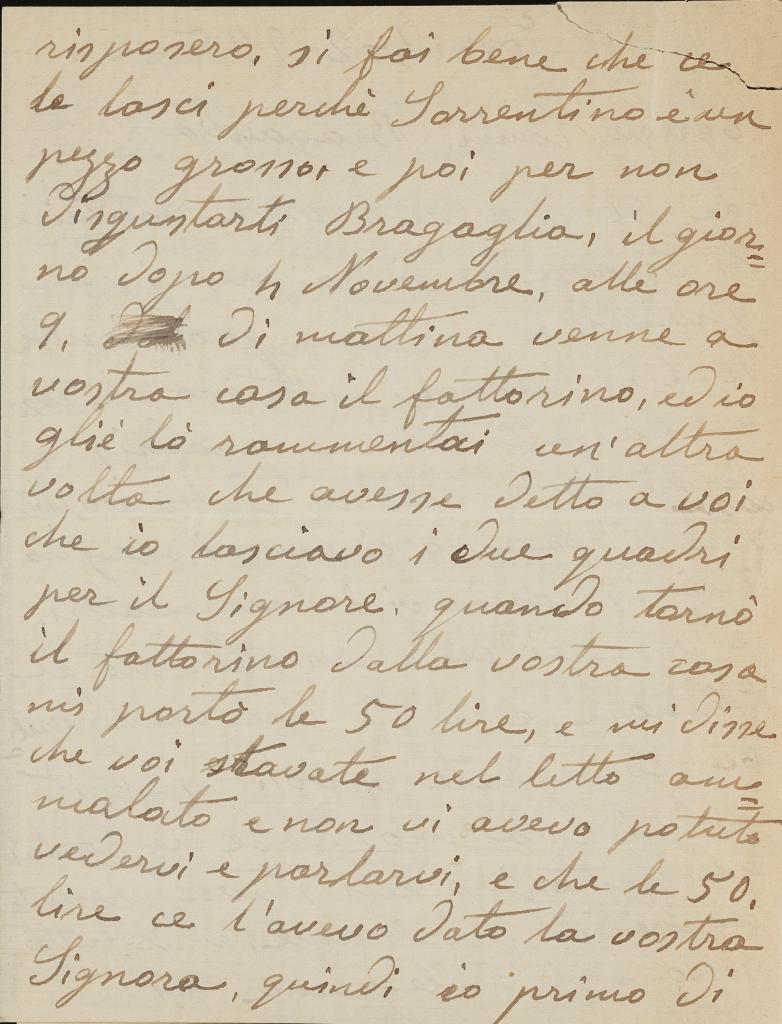 risposero, si fai bene che ce
le lasci perchè Sorrentino è un
pezzo grosso, e poi per non
disgustarti Bragaglia, il gior=
no dopo 4 Novembre, alle ore
9, di mattina venne a
vostra casa il fattorino, ed io
gliè lò rammentai un'altra
volta che avesse detto a voi
che io lasciavo i due quadri
per il Signore. quando tornò
il fattorino dalla vostra casa
mi portò le 50 lire, e mi disse
che voi stavate nel letto am=
malato e non vi aveva potuto
vedervi e parlarvi, e che le 50,
lire ce l'aveva dato la vostra
Signora, quindi io primo di